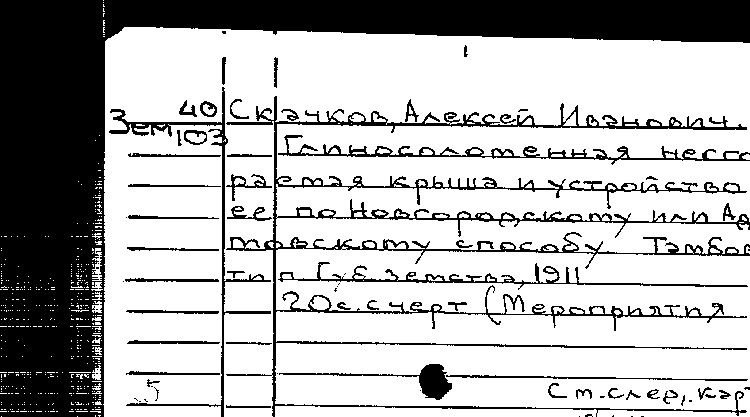 40 Скачков, Алексей Иванович.
Зем 103
Глиносоломенная несго
раемая крыша и устройство
ее по Новгородскому или Ад
товскому способу Тамбов
тип Губ земства, 1911
20с. с черт (Мероприятия
5 См. след. карт